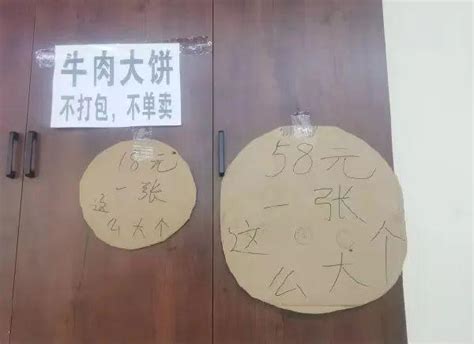 牛肉大饼
不打包，不单卖
18元
一张
这么大个
58元
一张
这么大个